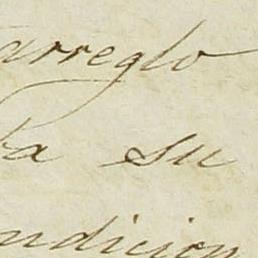 arreglo
ta su
ndicion